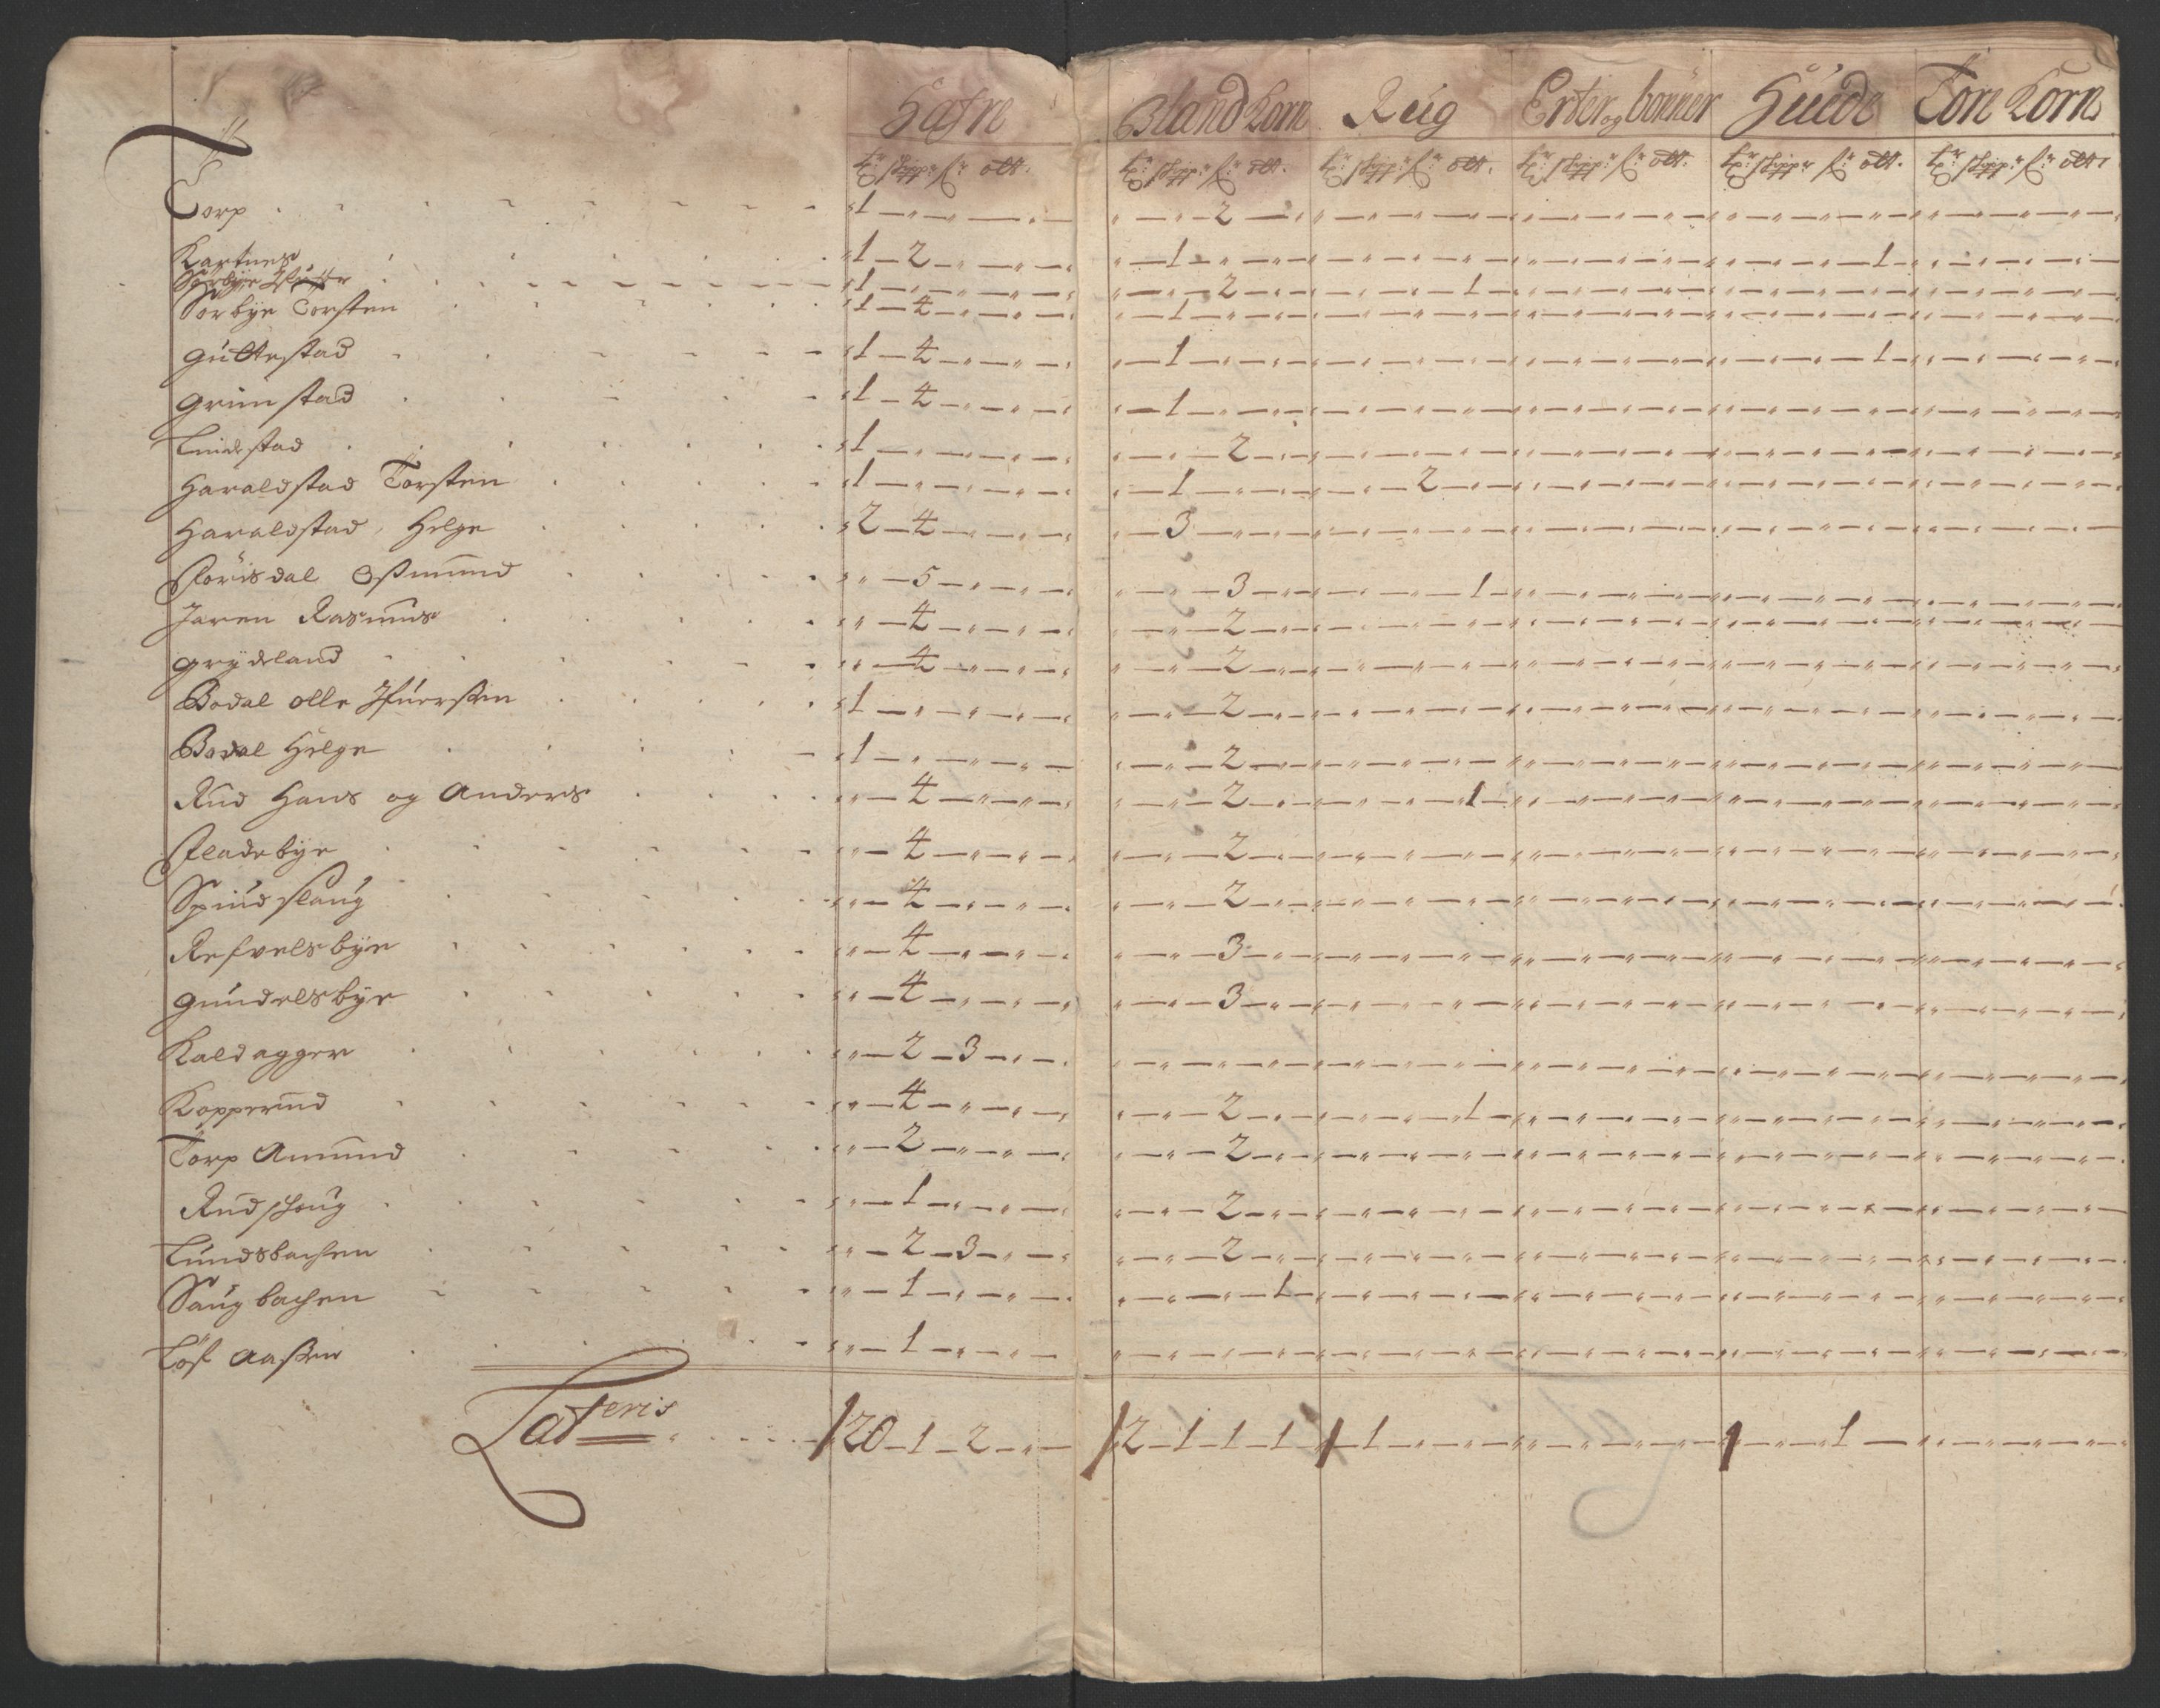 Hafre Bland Korn Rug Erter og bönner Huede Tore Korn
tr: skipp: fr: ott. tr: skipp: fr: ott. tr: skipp: fr: ott. tr: skipp: fr: ott. tr: skipp: fr: ott. tr: skipp: fr: ott.
Torp 1 2
Kartnes 1 2 1 1
Sörbye 1 2 1
Sörbye Torsten 1 4 1
Gultestad 1 4 1 1
Grimstad 1 4 1
Lundestad 1 2
Haraldstad Torsten 1 1 2
Haraldstad, Helge 2 4 3
Florisdal Osmund 5 3 1
Jaren Rasmus 4 2
Grydeland 4 2
Bodal olle Ifuersen 1 2
Bodal Helge 1 2
Rud Hans og Anders 4 2 1
Fladebye 4 2
Spindslaug 4 2
Refvelsbye 4 3
Gundelsbye 4 3
Kaldagger 2 3
Kopperud 4 2 1
Torp Amund 2 2
Rudshoug 1 2
Lundsbachen 2 3 2
Haugbachen 1 1
Löf Aasen 1
Lateris 20 1 2 2 1 1 1 1 1